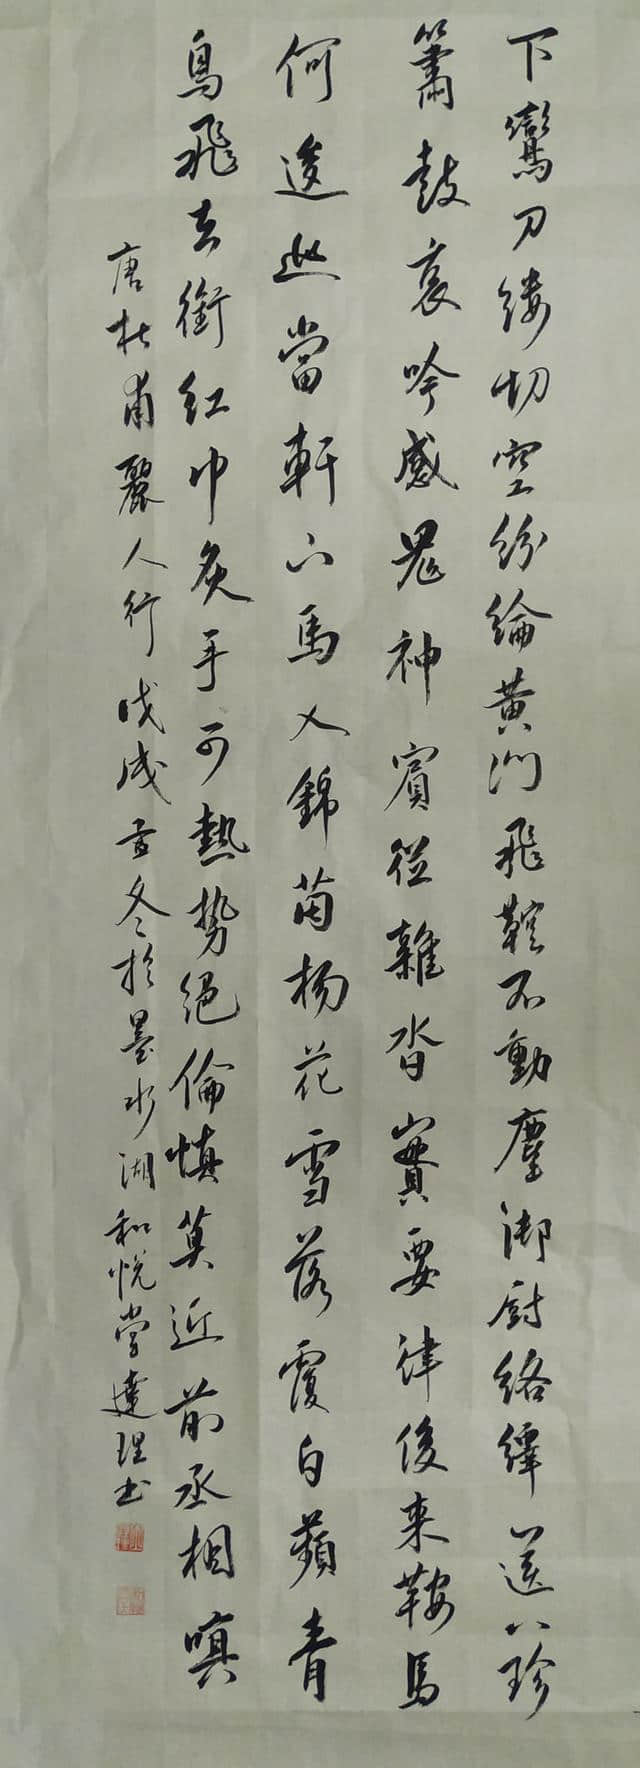 下鸞刀縷切空紛綸黄門飛鞚不動塵御厨絡繹送八珍
簫鼓哀吟感鬼神賓從雜沓實要津後来鞍馬
何逡巡當軒下馬入錦茵楊花雪落覆白蘋青
鳥飛去銜紅巾炙手可熱势絶倫慎莫近前丞相嗔
唐杜甫麗人行戊戌孟冬於墨水湖和悦堂達理书